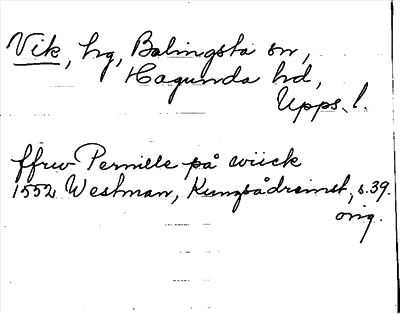 Vik, hg, Balingsta sn,
Hagunda hd,
Upps. l.
ffrw Pernille på wiick
1552 Westman, Kungsådrainst, s. 39.
orig.